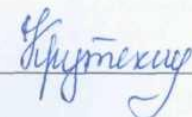 Крутский